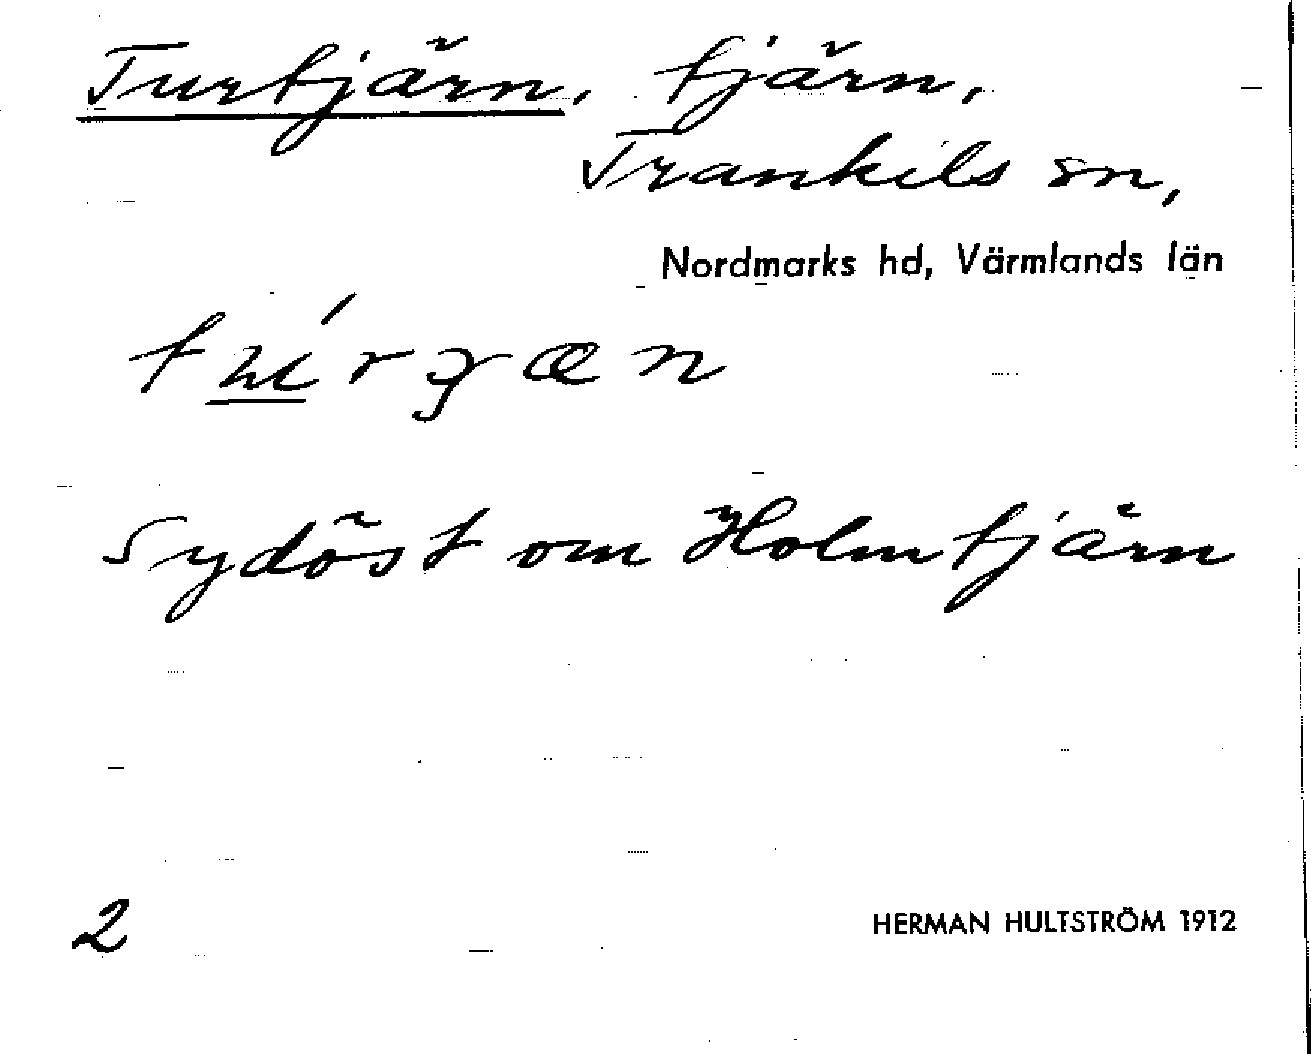 Turtjärn, tjärn,
Trankils sn,
Nordmarks hd, Värmlands län
Sydöst om Holmtjärn
2
HERMAN HULTSTRÖM 1912